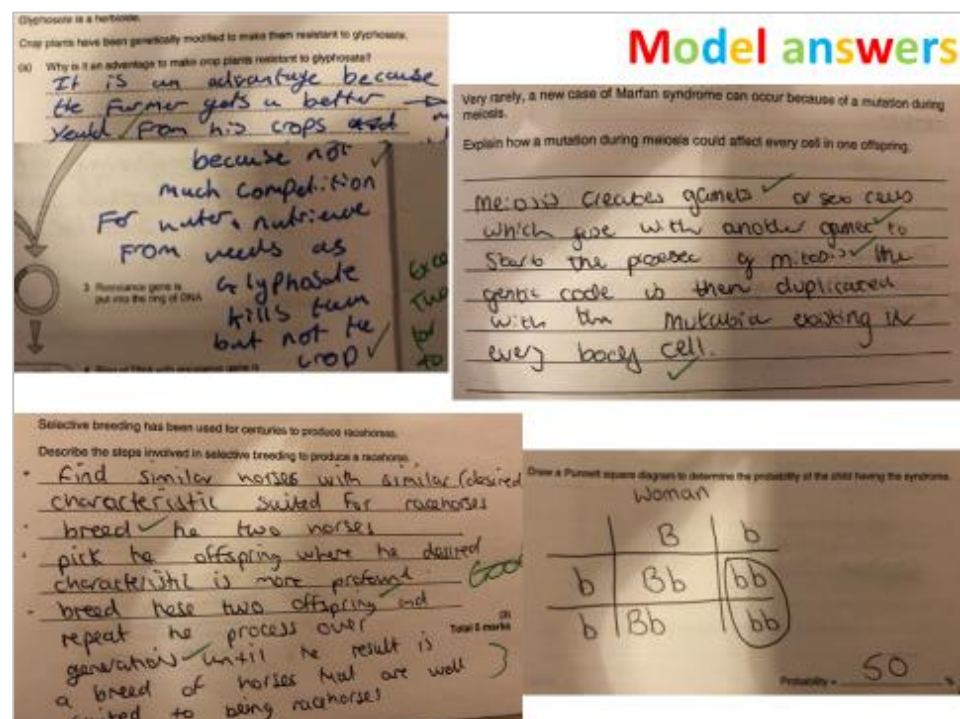 Model answers
Glyphosate is a herbicide.
Crop plants have been genetically modified to make them resistant to glyphosate.
(a) Why is it an advantage to make crop plants resistant to glyphosate?
It is an advantage because
the Farmer gets a better
Yeald From his crops and
because not
much competition
For water, nutrience
From weeds as
Glyphosate
kills them
but not the
crop
3 Resistance gene is
put into the ring of DNA
Very rarely, a new case of Marfan syndrome can occur because of a mutation during
meiosis.
Explain how a mutation during meiosis could affect every cell in one offspring.
Meiosis creates gamets or sex cells
which fuse with another gamet to
start the process of mitosis. The
gentic code is then duplicated
with the mutation existing in
every body cell.
Selective breeding has been used for centuries to produce racehorses.
Describe the steps involved in selective breeding to produce a racehorse.
Find similar horses with similar (desired
characteristic suited for racehorses
breed he two horses
pick he offspring where he desired
characteristic is more
Good
breed hese two offspring and
repeat he process over
generations until he result is
a breed of horses that are well
suited to being racehorses
Total 5 marks
Draw a Punnett square diagram to determine the probability of the child having the syndrome.
Woman
B b
b Bb bb
b Bb bb
Probability = 50 %